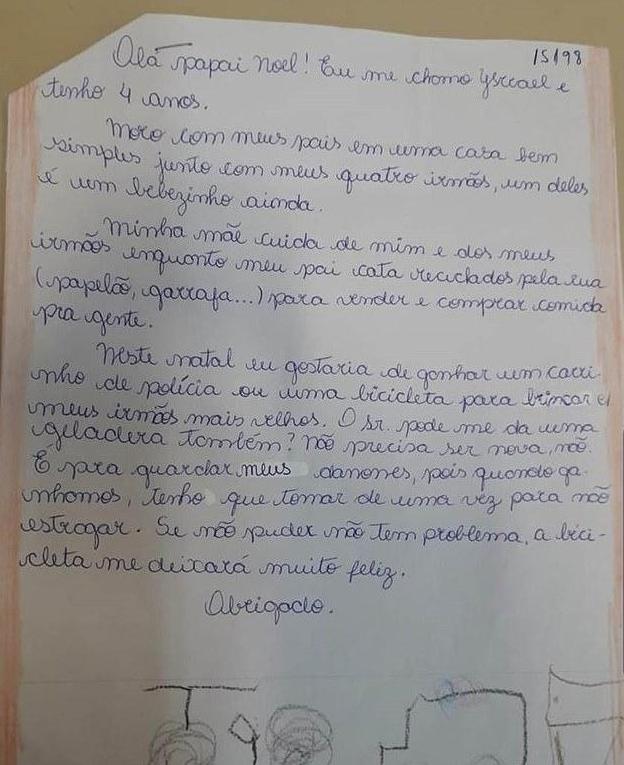 15198
Olá papai Noel! Eu me chamo Ysrrael e
tenho 4 anos.
Moro com meus pais em uma casa bem
simples junto com meus quatro irmãos, um deles
é um bebezinho ainda.
Minha mãe cuida de mim e dos meus
irmãos enquanto meu pai cata reciclados pela rua
(papelão, garrafa...) para vender e comprar comida
pra gente.
Neste natal eu gostaria de ganhar um carri-
nho de polícia ou uma bicicleta para brincar e
meus irmãos mais velhos. O sr. pode me da uma
geladera também? Não precisa ser nova, não.
É pra guardar meus danones, pois quando ga-
nhamos, tenho que tomar de uma vez para não
estragar. Se não puder não tem problema, a bici-
cleta me deixará muito feliz.
Obrigado.